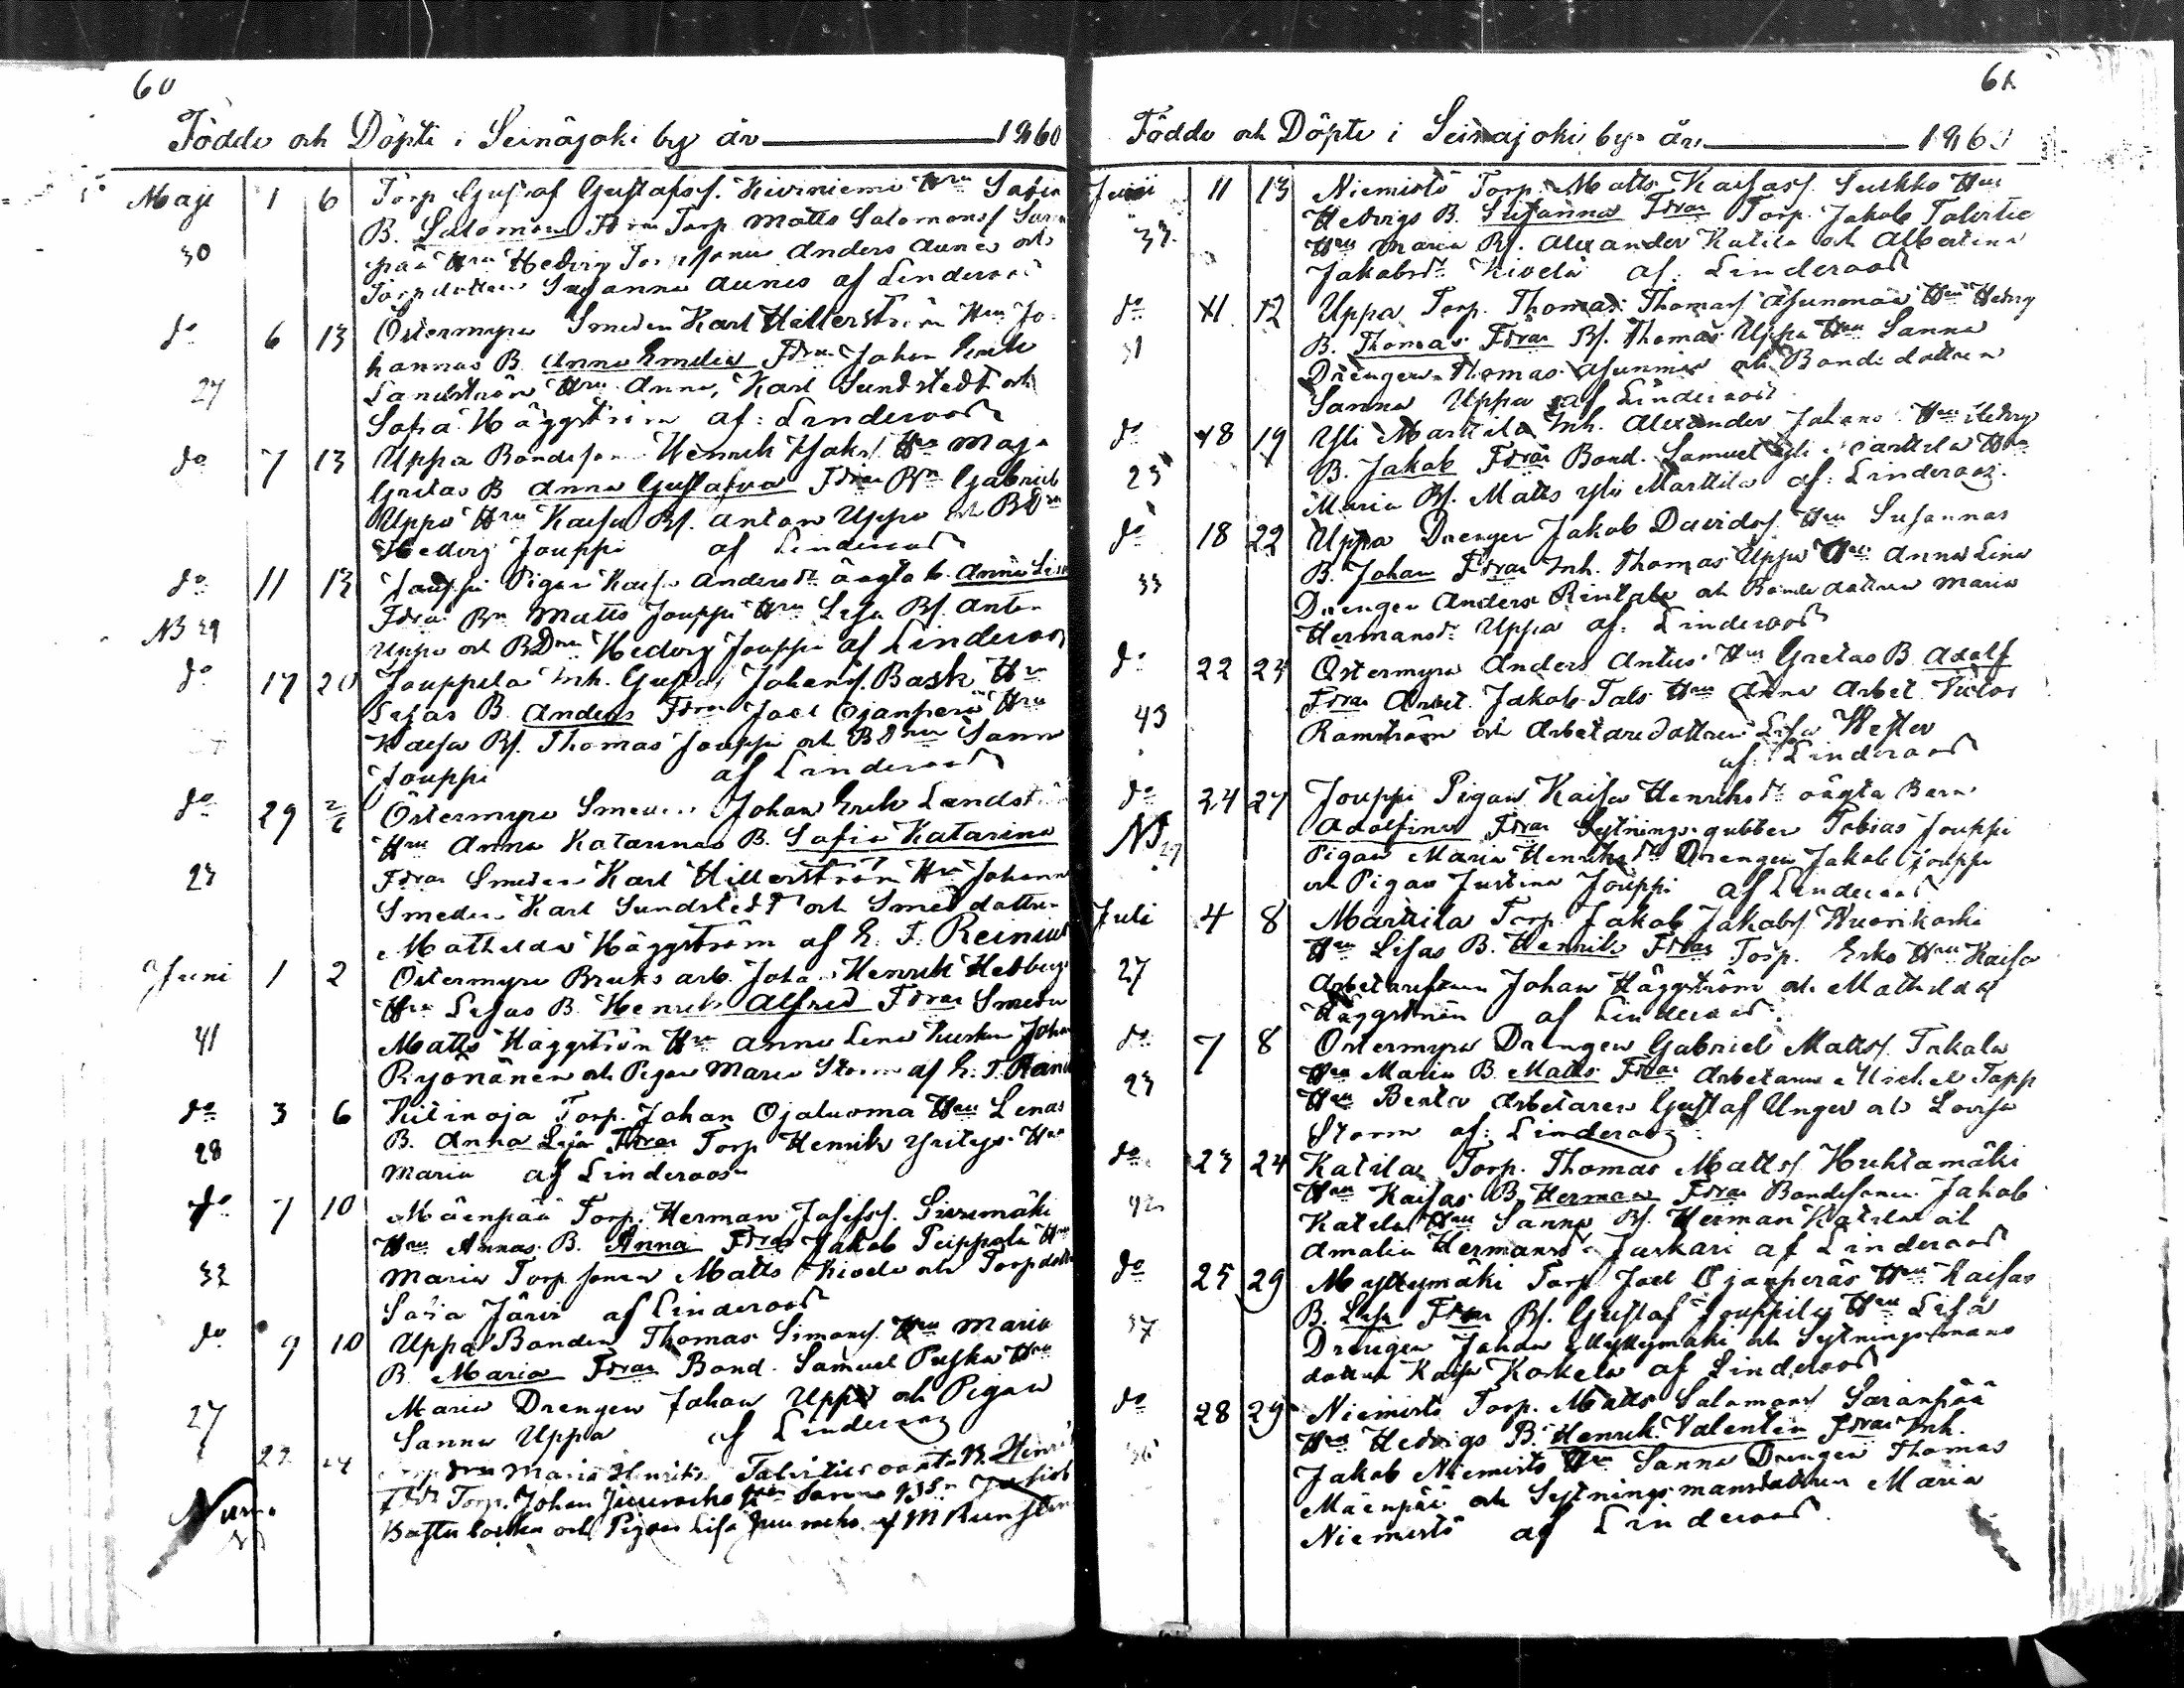 60
Födde och Döpte i Seinäjoki by år 1860
Maji 1 6 Torp Gustaf Gustafss. Kiviniemi Hru Sofia
B. Salomon Fdrar Torp Matts Salomons
30 pää Hru Hedvig Torpsonen Anders Aunes och
Torpdottren Susanna Aunes af Linderoos
do 6 13 Östermyra Smeden Karl Hillerström Hru Jo-
hannas B. Anna Emelia Fdrar Johan Erik
27 Landström Hru Anna, Karl Sundstedt och
Sofia Häggström af: Linderoos
do 7 13 Uppa Bondeson Henrik Jaks. Hru Maja
Gretas B Anna Gustafva Fdrar Bn Gabriel
Uppa Hru Kaisa Bs. Anton Uppa och BDr
Hedvig Jouppi af Linderoos
do 11 13 Jouppi Pigan Kaisa Andersdr oägta b. Anna Lisa
Fdrar Bn Matts Jouppi Hru Lisa Bs. Anton
NB 29 Uppa och BDrn Hedvig Jouppi af Linderoos
do 17 20 Jouppila Inh. Gustaf Johans. Bask Hru
Lisas B. Anders Fdrar Joel Ojanperä Hru
Kaisa Bs. Thomas Jouppi och BDrn Sanna
Jouppi af Linderoos
do 29 2/6 Östermyra Smeden Johan Erik Landström
Hru Anna Katarinas B. Sofia Katarina
23 Fdrar Smeden Karl Hillerström Hru Johanna
Smeden Karl Sundstedt och Smed dottren
Mathilda Häggström af E. F. Reinius
Juni 1 2 Östermyra Bruks arb. Johan Henrik Hedberg
Hru Lisas B. Henrik Alfred Fdrar Smeden
41 Matts Häggström Hru Anna Lena Kusken Johan
Ryönänen och Pigan Maria Storm af E. F. Reinius
do 3 6 Kitinoja Torp. Johan Ojaluoma Hru Lenas
B. Anna Lisa Fdrar Torp Henrik Yrityys Hru
28 Maria af Linderoos
do 7 10 Mäenpää Torp. Herman Josefss. Sivumäki
Hru Annas B. Anna Fdrar Jakob Peippola Hru
32 Maria Torp sonen Matts Kivelä och Torpdottr
Sofia Järvi af Linderoos
do 9 10 Uppa Bonden Thomas Simons. Hru Maria
B. Maria Fdrar Bond. Samuel Puska Hru
Maria Drengen Johan Uppa och Pigan
27 Sanna Uppa af Linderoos
22 24 Maria Henriks Talvitie oägta B. Henrik
Fdr Torp. Johan Hru Sanna
och Pigan Lisa af M Runsten
61
Födde och Döpte i Seinäjoki by år 1860
Juni 11 13 Niemistö Torp. Matts Kaisas. Luhko Hru
Hedvigs B. Susanna Fdrar Torp. Jakob Talvitie
33 Hru Maria Bs. Alexander Katila och Albertina
Jakobsdr Kivelä af: Linderoos
do 11 12 Uppa Torp. Thomas Thomass Asunmaa Hru Hedvig
B. Thomas Fdrar Bs. Thomas Uppa Hru Sanna
31 Drengen Thomas Asunmaa och Bonde dottren
Sanna Uppa af Linderoos
do 18 19 Yli Marttila Inh. Alexander Johans. Hru Hedvigs
B. Jakob Fdrar Bond. Samuel Yli Marttila Hru
25 Maria Bs. Matts Yli Marttila af: Linderoos.
do 18 22 Uppa Drengen Jakob Davids. Hru Susannas
B. Johan Fdrar Inh. Thomas Uppa Hru Anna Lina
33 Drengen Anders Rintala och Bonde dottren Maria
Hermansdr Uppa af: Linderoos
do 22 24 Östermyra Anders Antus Hru Gretas B Adolf
Fdrar Arbet. Jakob Tals Hru Anna Arbet. Victor
43 Ramström och Arbetare dottren Lisa Wester
af: Linderoos
do 24 27 Jouppi Pigan Kaisa Henriksdr oägta Barn
NB 29 Adolfina Fdrar Sytnings gubben Tobias Jouppi
Pigan Maria Henriksdr Drengen Jakob Jouppi
och Pigan Justina Jouppi af Linderoos
Juli 4 8 Marttila Torp. Jakob Jakobs. Wuorikoski
Hru Lisas B. Henrik Fdrar Torp. Erko Hru Kaisa
27 Arbetaresonen Johan Häggström och Mathilda
Häggström af Linderoos.
do 7 8 Östermyra Drengen Gabriel Matts. Takala
Hru Maria B. Matts Fdrar Arbetaren Michel Tapp
23 Hru Benta Arbetaren Gustaf Unger och Lovisa
Storm af: Linderoos
do 23 24 Katila Torp. Thomas Mattss. Huhtamäki
Hru Kaisas B. Herman Fdrar Bondesonen Jakob
42 Katila Hru Sanna Bs. Herman Katila och
Amalia Hermansdr Juskari af Linderoos
do 25 29 Myllymäki Torp Joel Ojanperäs Hru Kaisas
B. Lisa Fdrar Bs. Gustaf Jouppila Hru Lisa
37 Drengen Johan Myllymäki och Sytningsmans
dottren Kaisa Koskela af Linderoos
do 28 29 Niemistö Torp. Matts Salomons Saranpää
Hru Hedvigs B. Henrik Valentin Fdrar Inh.
36 Jakob Niemistö Hru Sanna Drengen Thomas
Mäenpää och Sytningsmansdottren Maria
Niemistö af Linderoos.